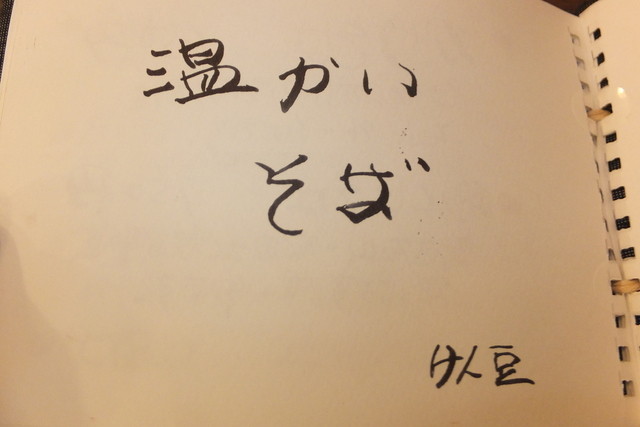 温かい
そば
けん豆